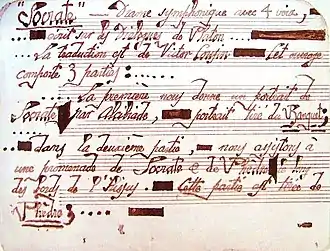 "Socrate" — Drame symphonique avec 4 voix,
écrit sur des Dialogues de Platon
La traduction est de Victor Cousin Cet ouvrage
comporte 3 parties:
La première nous donne un portrait de
Socrate par Alcibiade, portrait tiré du Banquet;
dans la deuxième partie, nous assistons à
une promenade de Socrate & de Phèdre
des bords de l'Ilissus Cette partie est tirée de
Phèdre;